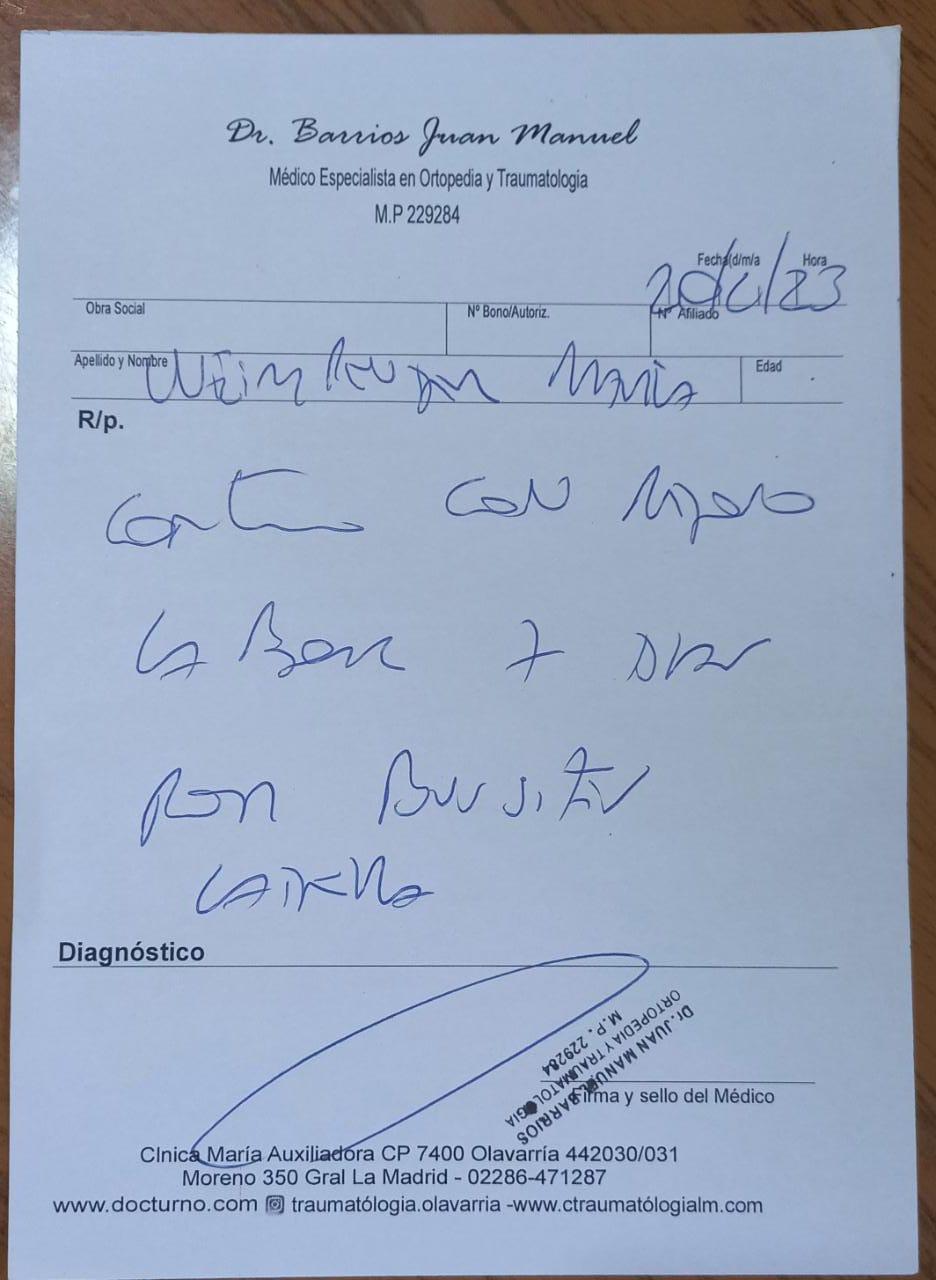 Dr. Barrios Juan Manuel
Médico Especialista en Ortopedia y Traumatologia
M.P 229284
Fecha(d/m/a Hora
Obra Social Nº Bono/Autoriz. Nº Afiliado
Apellido y Nombre María Edad
R/p.
continua con reposo
laboral 7 dias
por Bursitis
Diagnóstico
Dr. JUAN MANUEL BARRIOS
ORTOPEDIA Y TRAUMATOLOGIA
M.P. 229284
Firma y sello del Médico
Clnica María Auxiliadora CP 7400 Olavarría 442030/031
Moreno 350 Gral La Madrid - 02286-471287
www.docturno.com traumatólogia.olavarria -www.ctraumatólogialm.com